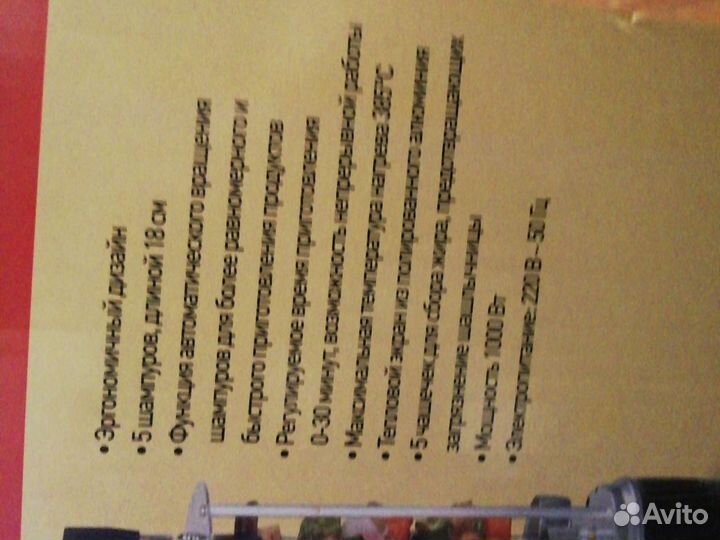 • Эргономичный дизайн
• 5 шампуров, длиной 18 см
• Функция автоматического вращения
шампуров для более равномерного и
быстрого приготовления продуктов
• Регулируемое время приготовления
0-30 минут, возможность непрерывной работы
• Максимальная температура нагрева 385°С
• Тепловой экран из полированного алюминия
• 5 чашечек для сбора жира, предотвращающих
загрязнение шашлычницы
• Мощность 1000 Вт
• Электропитание: 220 В ~ 50 Гц
Avito